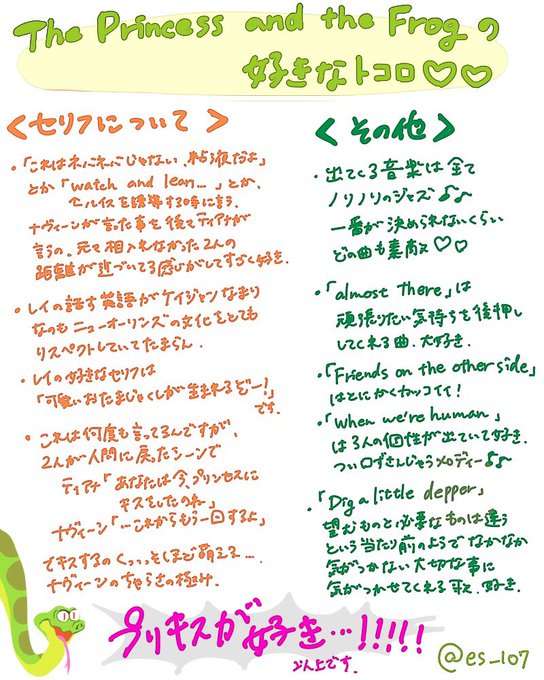 The Princess and the Frog の
好きなトコロ♡♡
＜セリフについて＞
・「これはネバネバじゃない、粘液だよ」
とか「watch and lean…」とか、
ナヴィーンが言った事を後でティアナが
言うの。元々相入れなかった2人の
距離が近づいてる感じがしてすごく好き。
・レイの話す英語がケイジャンなまり
なのもニューオーリンズの文化をとても
リスペクトしていてたまらん。
・レイの好きなセリフは
「可愛いおたまじゃくしが生まれるぞー!」
です。
・これは何度も言ってるんですが、
2人が人間に戻ったシーンで
ティアナ「あなたは今、プリンセスに
キスをしたのね」
ナヴィーン「…これからもう一回するよ」
でキスするのくっっっそほど萌えて…
ナヴィーンのちゃらさの極み。
＜その他＞
・出てくる音楽は全て
ノリノリのジャズ♪♪
一番が決められないくらい
どの曲も素敵♡♡
・「almost there」は
頑張りたい気持ちを後押し
してくれる曲。大好き。
・「Friends on the other side」
はとにかくカッコイイ!
・「When we're human」
は3人の個性が出ていて好き。
つい口ずさんじゃうメロディー♪♪
・「Dig a little depper」
望むものと必要なものは違う
という当たり前のようでなかなか
気がつかない大切な事に
気がつかせてくれる歌。好き。
プリキスが好き…!!!!!
以上です。
@es_107